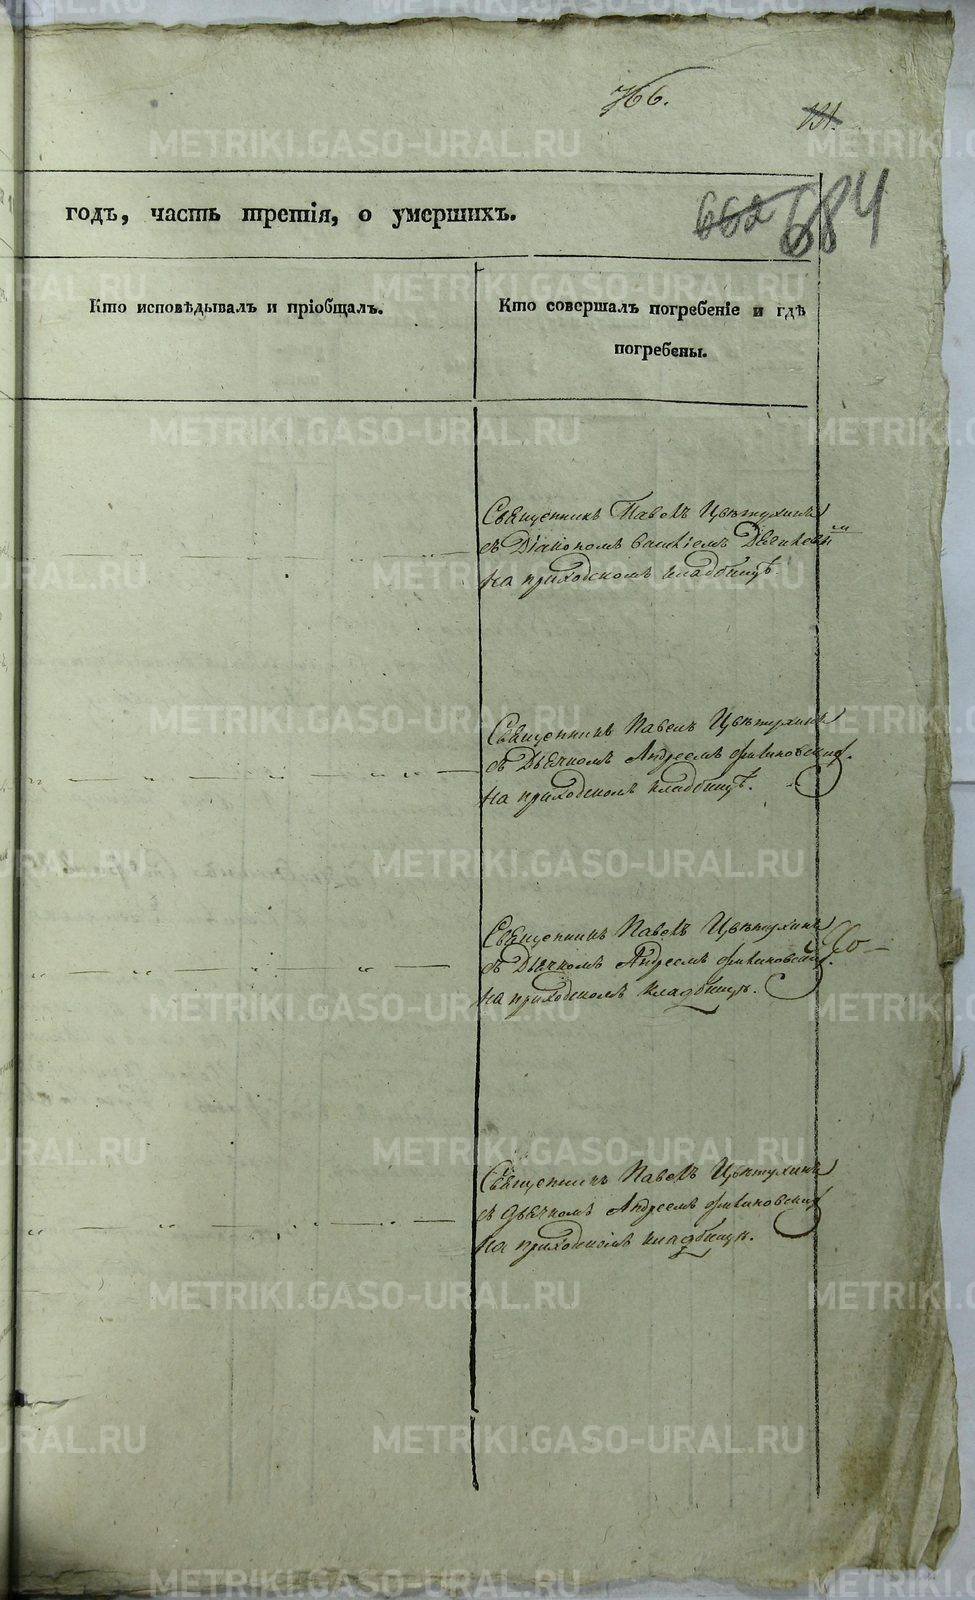 766.
131.
годъ, часть третія, о умершихъ.
662 684
Кто исповѣдывалъ и пріобщалъ.
Кто совершалъ погребеніе и гдѣ
погребены.
Священникъ Павелъ Цвѣтухинъ
съ Діакономъ
на приходскомъ кладбищѣ.
Священникъ Павелъ Цвѣтухинъ
съ Дьячкомъ Андреемъ
на приходскомъ кладбищѣ.
Священникъ Павелъ Цвѣтухинъ
съ Дьячкомъ Андреемъ
на приходскомъ кладбищѣ.
Священникъ Павелъ Цвѣтухинъ
съ Дьячкомъ Андреемъ
на приходскомъ кладбищѣ.
METRIKI.GASO-URAL.RU